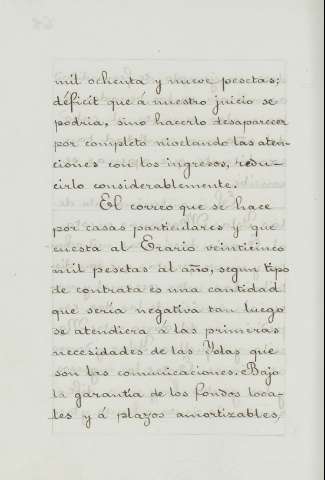 mil ochenta y nueve pesetas;
déficit que á nuestro juicio se
podria, sino hacerlo desaparecer
por completo nioelando las aten-
ciones con los ingresos, redu-
cirlo considerablemente.
El correo que se hace
por casas particulares y que
cuesta al Erario veinticinco
mil pesetas al año, segun tipo
de contrata es una cantidad
que seria negativa tan luego
se atendiera á las primeras
necesidades de las Yslas que
son las comunicaciones. Bajo
la garantía de los fondos loca-
les y á plazos amortizables,